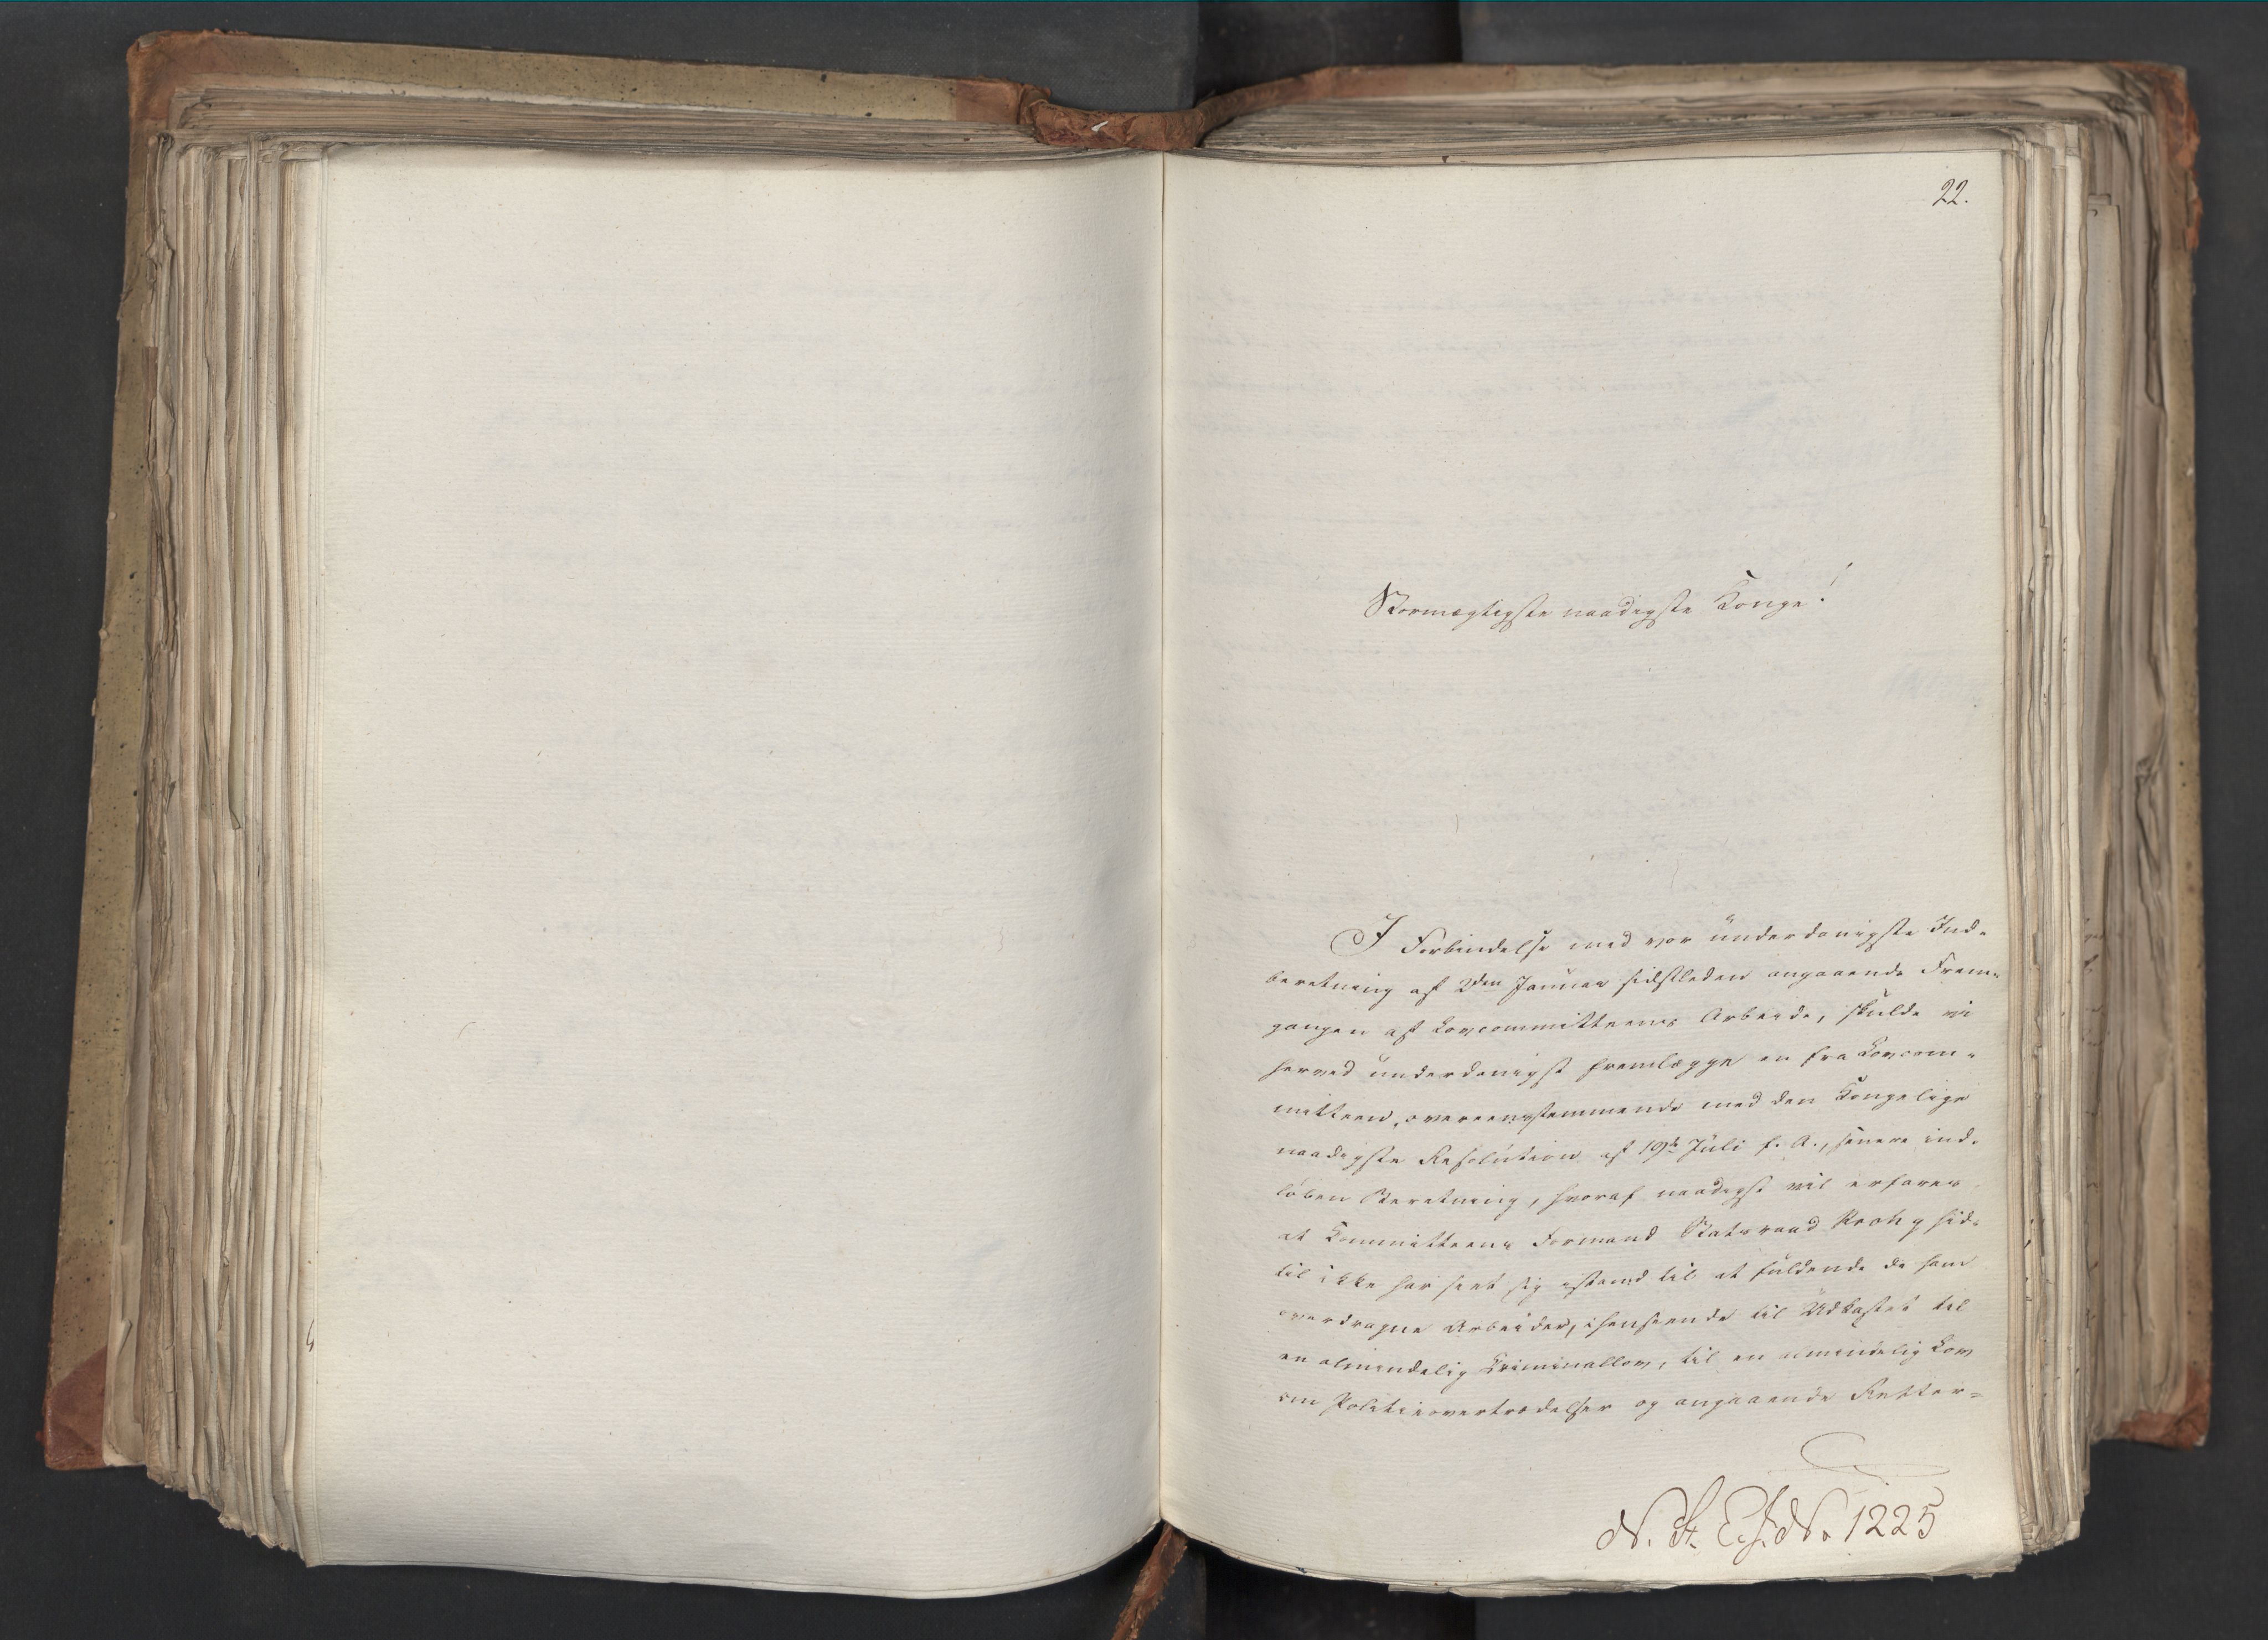 22.
Stormægtigste naadigste Konge!
I Forbindelse med vor underdanigste Ind-
beretning af 2den Januar sidstleden angaaende Frem-
gangen af Lovcommitteens Arbeide, skulde vi
herved underdanigst fremlægge en fra Lovcom-
mitteen, overeensstemmende med den Kongelige
naadigste Resolution af 19de Juli f. A., senere ind-
løben Beretning, hvoraf naadigst vil erfares
at Committeens Formand Statsraad Krohg hid-
til ikke har seet sig istand til at fuldende de ham
overdragne Arbeider, ihenseende til Udkastet til
en almindelig Criminallov, til en almindelig Lov
om Politieovertrædelser og angaaende Retter-
N. St. E. J. No. 1225